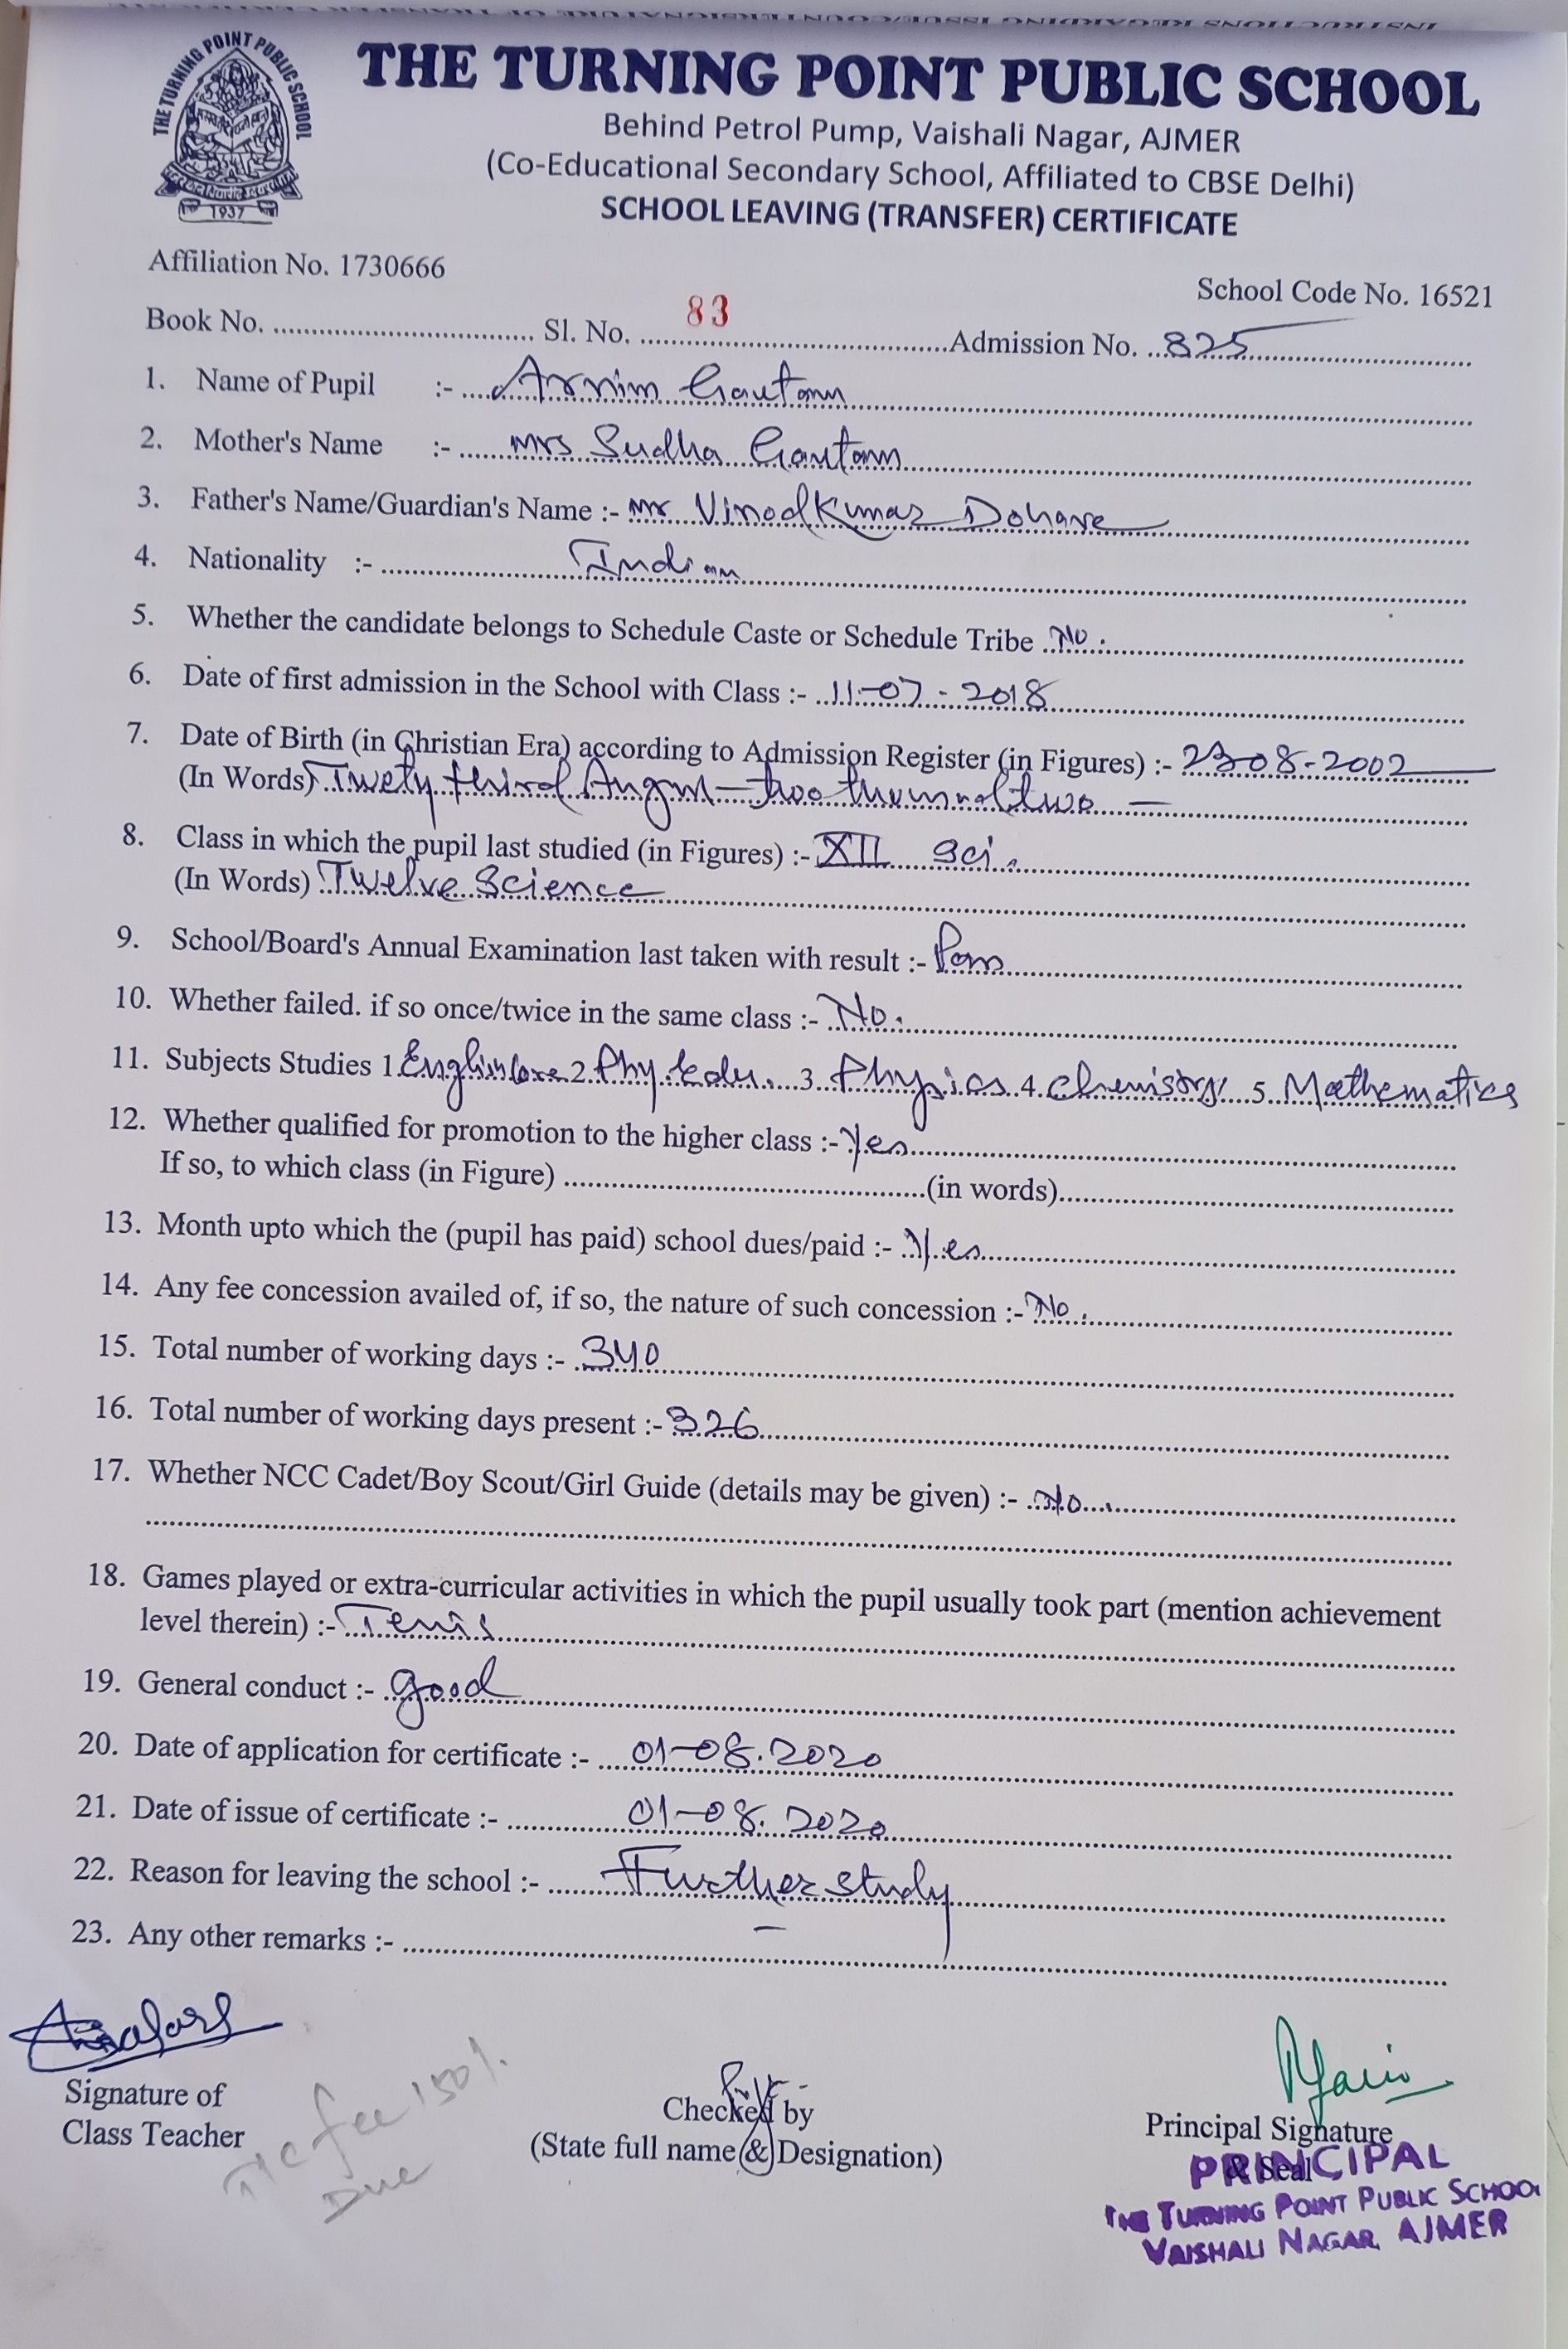 THE TURNING POINT PUBLIC SCHOOL
1937
THE TURNING POINT PUBLIC SCHOOL
Behind Petrol Pump, Vaishali Nagar, AJMER
(Co-Educational Secondary School, Affiliated to CBSE Delhi)
SCHOOL LEAVING (TRANSFER) CERTIFICATE
Affiliation No. 1730666
School Code No. 16521
Book No. Sl. No. 83 Admission No. 825
1. Name of Pupil :- Arnim Gautam
2. Mother's Name :- Mrs Sudha Gautam
3. Father's Name/Guardian's Name :- Mr Vinod Kumar Dohare
4. Nationality :- Indian
5. Whether the candidate belongs to Schedule Caste or Schedule Tribe No.
6. Date of first admission in the School with Class :- 11-07-2018
7. Date of Birth (in Christian Era) according to Admission Register (in Figures) :- 23-08-2002
(In Words) Twety third August two thousand two
8. Class in which the pupil last studied (in Figures) :- XII Sci.
(In Words) Twelve Science
9. School/Board's Annual Examination last taken with result :- Pass
10. Whether failed. if so once/twice in the same class :- No.
11. Subjects Studies 1. English Core 2. Phy. Edu. 3. Physics 4. Chemistry 5. Mathematics
12. Whether qualified for promotion to the higher class :- Yes
If so, to which class (in Figure) (in words)
13. Month upto which the (pupil has paid) school dues/paid :- Yes
14. Any fee concession availed of, if so, the nature of such concession :- No.
15. Total number of working days :- 340
16. Total number of working days present :- 326
17. Whether NCC Cadet/Boy Scout/Girl Guide (details may be given) :- No.
18. Games played or extra-curricular activities in which the pupil usually took part (mention achievement
level therein) :- Tenis
19. General conduct :- good
20. Date of application for certificate :- 01-08.2020
21. Date of issue of certificate :- 01-08.2020
22. Reason for leaving the school :- Further study
23. Any other remarks :- –
Signature of
Class Teacher
T/c fee 150/-
Due
Checked by
(State full name & Designation)
Principal Signature
& Seal
PRINCIPAL
THE TURNING POINT PUBLIC SCHOOL
VAISHALI NAGAR, AJMER